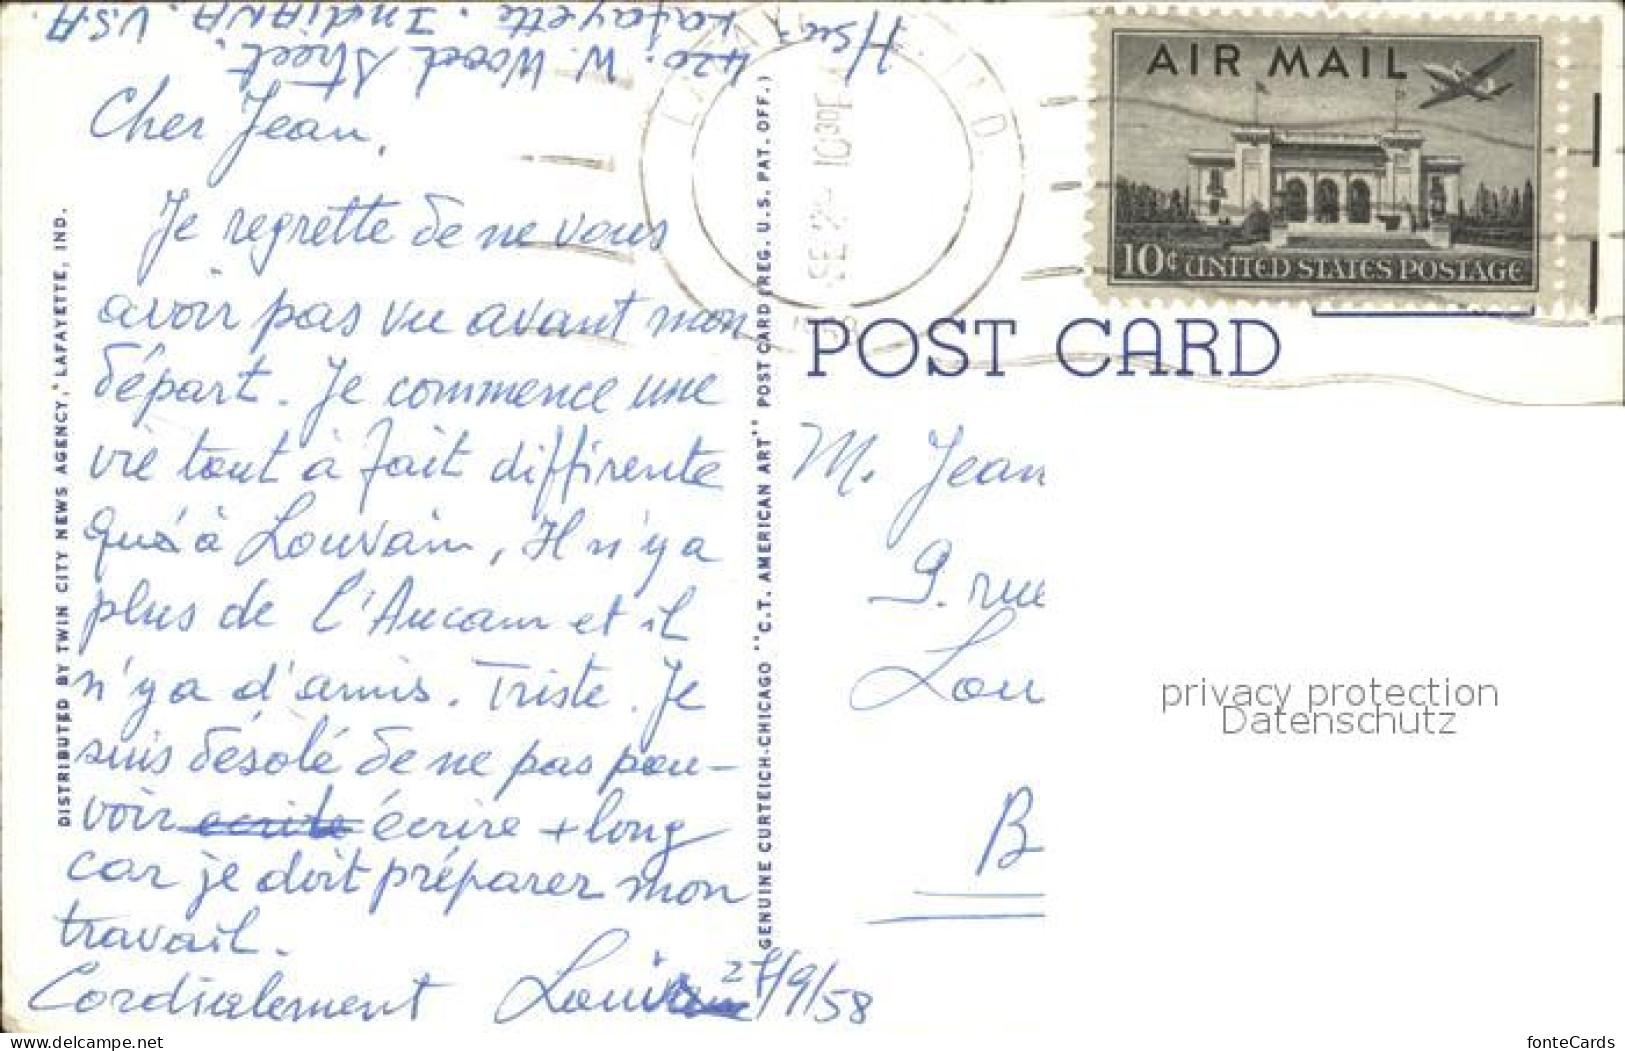 Hsu,
420. W. Wood Street.
Lafayette. IndiANA. U.S.A
Cher Jean,
Je regrette de ne vous
avoir pas vu avant mon
départ. Je commence une
vie tout à fait diffirente
qu'à Louvain, Il n'y a
plus de l'Aucam et il
n'y a d'amis. Triste. Je
suis désolé de ne pas pou-
voir écrire + long
car je doit préparer mon
travail.
Cordialement
27/9/58
DISTRIBUTED BY TWIN CITY NEWS AGENCY, LAFAYETTE, IND.
GENUINE CURTEICH-CHICAGO "C.T. AMERICAN ART" POST CARD (REG. U.S. PAT. OFF.)
IND.
10 30
AIR MAIL
10¢ UNITED STATES POSTAGE
POST CARD
M. Jean
9. rue
Lou
B
privacy protection
Datenschutz
www.delcampe.net
fonteCards